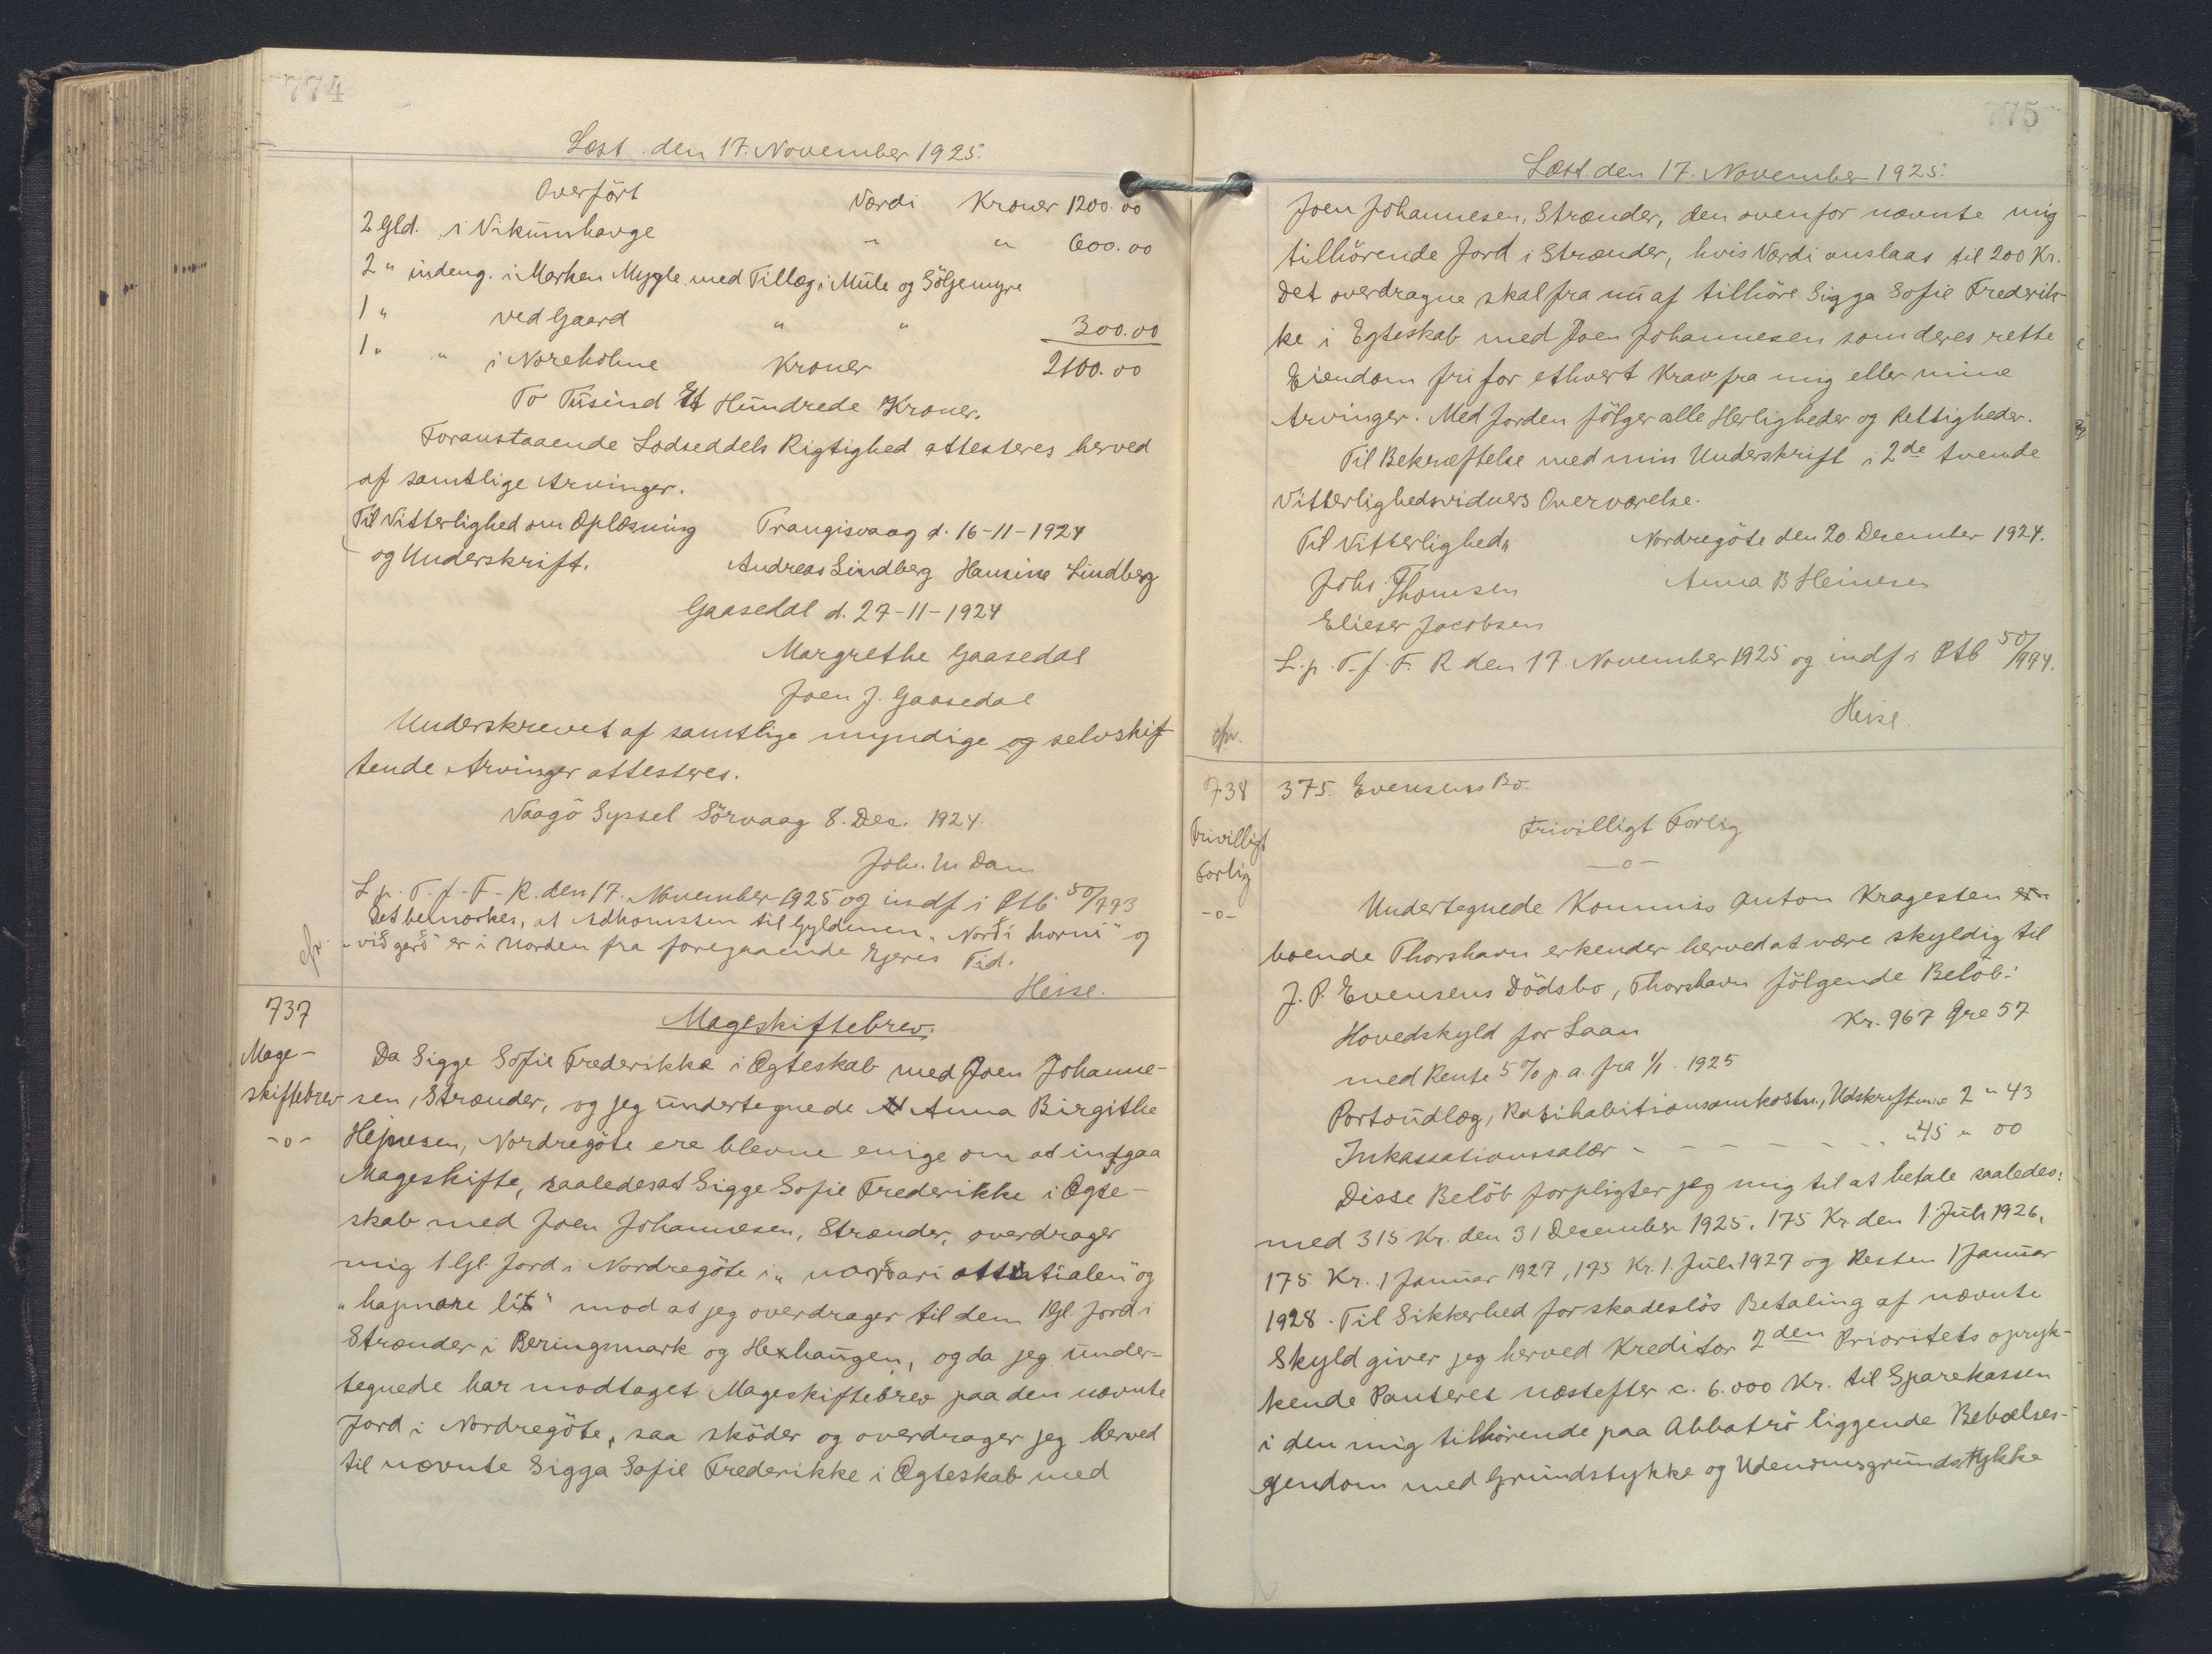 774
Læst den 17. November 1925.
Overført Værdi Kroner 1200.00
2 Gld. i Vikumhauge " " 600.00
2 " indeng. i Marken Mygle med Tillæg i Mule og Söljemyre
1 " ved Gaard " " 300.00
1 " " i Noreholme Kroner 2100.00
To Tusind Et Hundrede Kroner.
Foranstaaende Lodseddels Rigtighed attesteres herved
af samtlige Arvinger.
Til Vitterlighed om Oplæsning Trangisvaag d. 16-11-1924
og Underskrift. Andreas Lindberg Hansine Lindberg
Gaasedal d. 27-11-1924
Margrethe Gaasedal
Joen J. Gaasedal
Underskrevet af samtlige myndige og selvskif
tende Arvinger attesteres.
Vaagö Syssel Sörvaag 8. Des. 1924.
Joh. M Dam
L. p. T. f. F. R. den 17. November 1925 og indf i Ptb 50/993
Det bemærkes, at Adkomsten til Gyldenen „Norði horni“ og
„við gerð“ er i Norden fra foregaaende Ejeres Tid.
cfr.
Heise.
737
Mageskiftebrev.
Mage-
skiftebrev
-o-
Da Sigge Sofie Frederikke i Ægteskab med Joen Johanne-
sen, Strænder, og jeg undertegnede Anna Birgithe
Hejnesen, Nordregöte ere blevne enige om at indgaa
Mageskifte, saaledes at Sigge Sofie Frederikke i Ægte-
skab med Joen Johannesen, Strænder, overdrager
mig 1 Gl. Jord i Nordregöte i „norðari og
„ lið“ mod at jeg overdrager til dem 1 Gl. Jord i
Strænder i Beringsmark og Hexhaugen, og da jeg under-
tegnede har modtaget Mageskiftebrev paa den nævnte
Jord i Nordregöte, saa sköder og overdrager jeg herved
til nævnte Sigga Sofie Frederikke i Ægteskab med
775
Læst den 17. November 1925.
Joen Johannesen, Strænder, den ovenfor nævnte mig
tilhörende Jord i Strænder, hvis Værdi anslaas til 200 Kr.
Det overdragne skal fra nu af tilhöre Sigga Sofie Frederik-
ke i Egteskab med Joen Johannesen som deres rette
Eiendom fri for ethvert Krav fra mig eller mine
Arvinger. Med Jorden fölger alle Herligheder og Rettigheder.
Til Bekræftelse med min Underskrift i 2de tvende
Vitterlighedsvidners Overværelse.
Til Vitterlighed„ Nordregöte den 20. December 1924.
Johs. Thomsen Anna B Heinesen
Elieser Jacobsen
L. p. T. f. F. R den 17. November 1925 og indf i Ptb 50/994.
Heise.
cfr.
738 375. Evensens Bo.
Frivilligt
Forlig
-o-
Frivilligt Forlig
-o-
Undertegnede Kommis Anton Kragesten er
boende Thorshavn erkender herved at være skyldig til
J. P. Evensens Dödsbo, Thorshavn fölgende Belöb:
Hovedskyld for Laan Kr. 967 Øre 57
med Rente 5 % p. a. fra 1/1. 1925
Portoudlæg, Ratihabitionsomkostn., Udskrift m.v 2 " 43
Inkassationssalær - - - - - - " 45 " 00
Disse Belöb forpligter jeg mig til at betale saaledes:
med 315 Kr. den 31 December 1925. 175 Kr den 1. Juli 1926,
175 Kr. 1 Januar 1927, 175 Kr. 1. Juli 1927 og Resten 1 Januar
1928. Til Sikkerhed for skadeslös Betaling af nævnte
Skyld giver jeg herved Kreditor 2den Prioritets opryk-
kende Panteret næstefter c. 6.000 Kr. til Sparekassen
i den mig tilhörende paa Abbatrö liggende Beboelses-
ejendom med Grundstykke og Udenomsgrundstykke